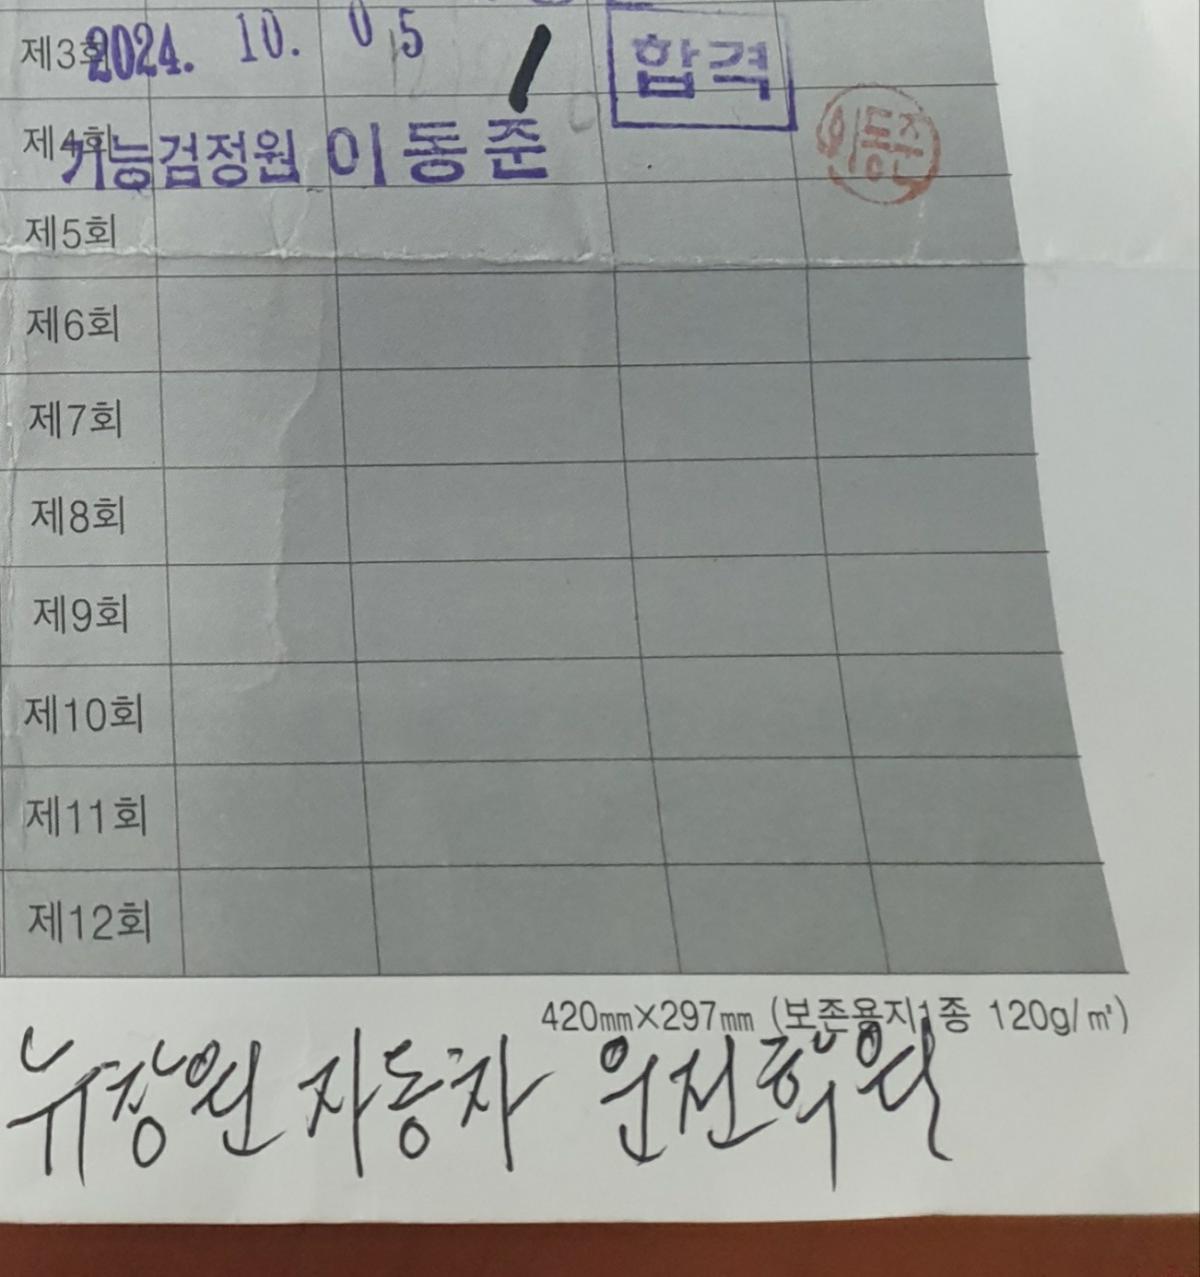 제3회 2024. 10. 05 합격
제4회 기능검정원 이동준 이동준
제5회
제6회
제7회
제8회
제9회
제10회
제11회
제12회
420mm×297mm (보존용지1종 120g/㎡)
뉴장원 자동차 운전학원